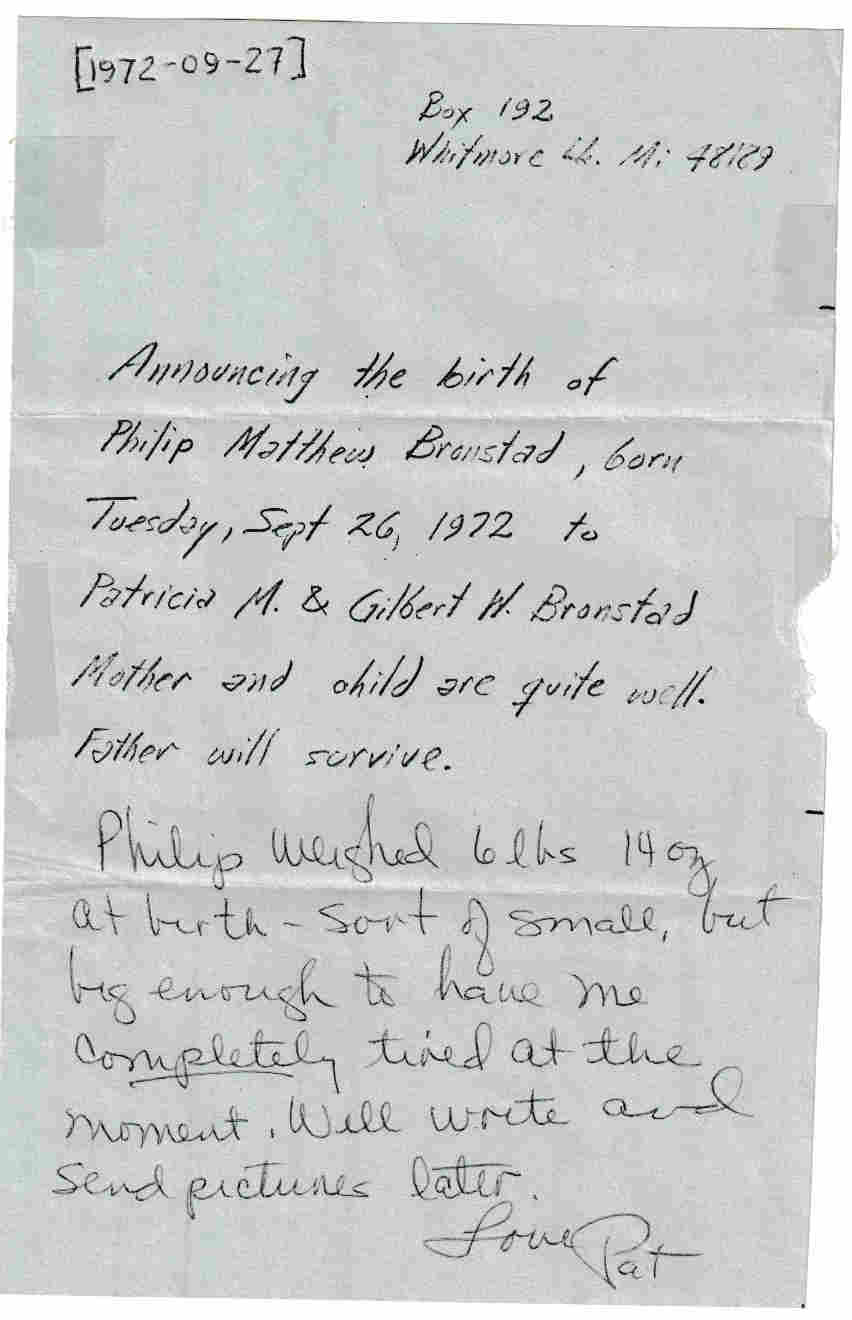 [1972-09-27]
Box 192
Whitmore Lk. Mi 48189
Announcing the birth of
Philip Matthew Bronstad, born
Tuesday, Sept 26, 1972 to
Patricia M. & Gilbert W. Bronstad
Mother and child are quite well.
Father will survive.
Philip weighed 6 lbs 14 oz
at birth - sort of small, but
big enough to have me
completely tired at the
moment. Will write and
send pictures later.
Love Pat